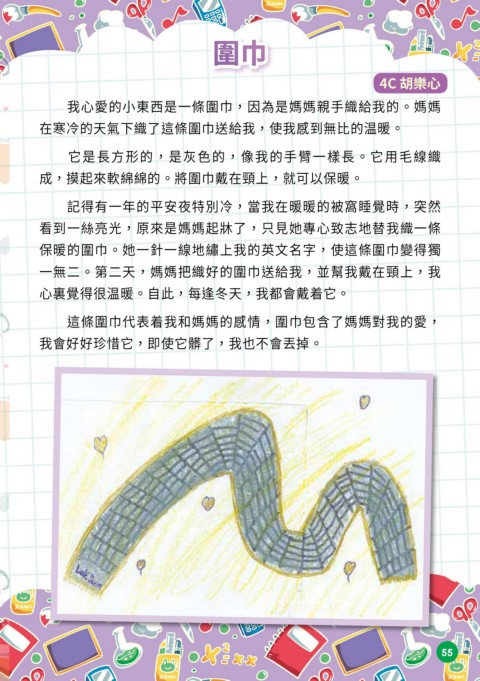 圍巾
4C 胡樂心
我心愛的小東西是一條圍巾，因為是媽媽親手織給我的。媽媽
在寒冷的天氣下織了這條圍巾送給我，使我感到無比的温暖。
它是長方形的，是灰色的，像我的手臂一樣長。它用毛線織
成，摸起來軟綿綿的。將圍巾戴在頸上，就可以保暖。
記得有一年的平安夜特別冷，當我在暖暖的被窩睡覺時，突然
看到一絲亮光，原來是媽媽起牀了，只見她專心致志地替我織一條
保暖的圍巾。她一針一線地繡上我的英文名字，使這條圍巾變得獨
一無二。第二天，媽媽把織好的圍巾送給我，並幫我戴在頸上，我
心裏覺得很温暖。自此，每逢冬天，我都會戴着它。
這條圍巾代表着我和媽媽的感情，圍巾包含了媽媽對我的愛，
我會好好珍惜它，即使它髒了，我也不會丟掉。
55